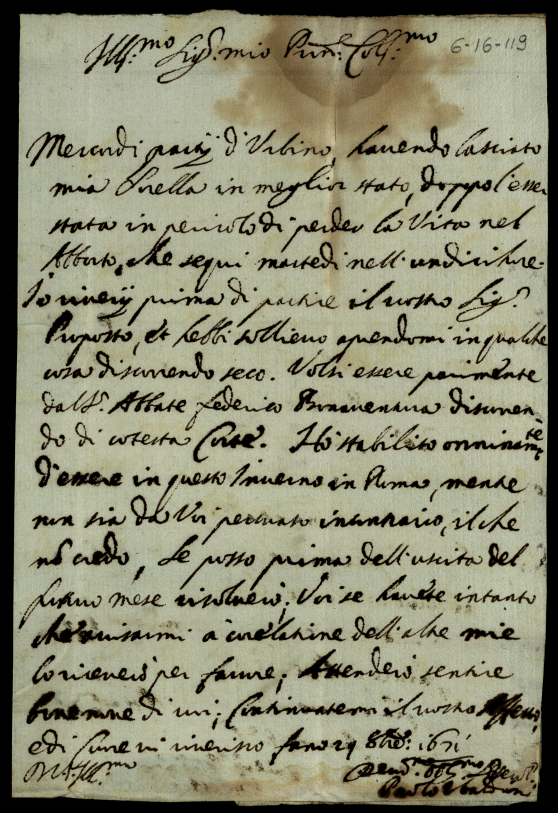 Ill.mo Sig.r mio Pron: Coll.mo
6-16-119
Mercordi partij d'Urbino, havendo lasciato
mia Sorella in meglior stato, doppo l'esser
stata in pericolo di perder la Vita nel
Abborto, che seguì martedi nell'undici hore.
Io riverij prima di partire il vostro Sig.r
Proposto, et hebbi sollievo aprendomi in qualche
cosa discorrendo seco. Volsi essere parimente
dal S.r Abbate Federico Bonaventura discorren-
do di cotesta Corte. Hò stabilito onninam.te
d'essere in questo Inverno in Roma, mentre
non sia da Voi persuaso in contrario, il che
nò credo, Se posso prima dell'uscita del
futuro mese risolverò. Voi se havete intanto
che avisarmi à correlatione dell'altre mie
lo riceverò per favore; Attenderò sentire
buone nove di voi; Continuatemi il vostro affetto,
e di Cuore vi riverisco Fano 29 8bre: 1651
D.V.S. Ill.mo
Dev.mo Obl.mo Ser.re
Paolo